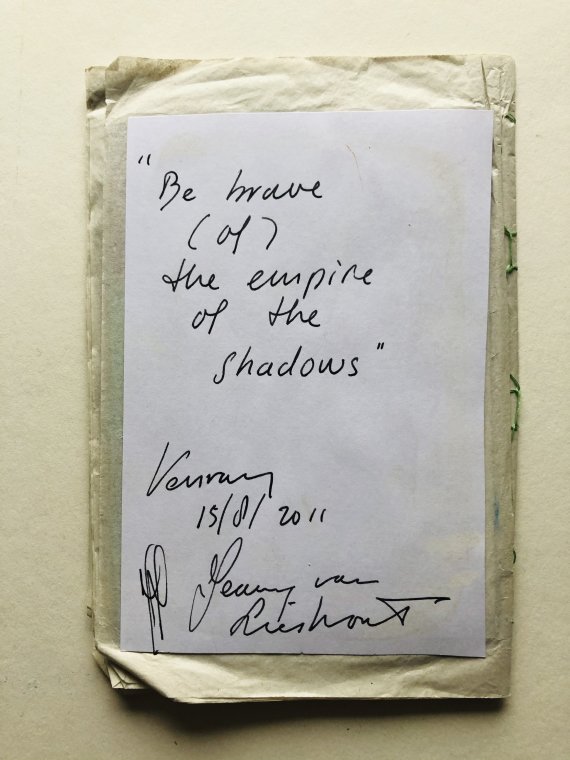 "Be brave
(of)
the empire
of the
shadows"
Venray
15/8/2011
Jeanny van
Lieshout